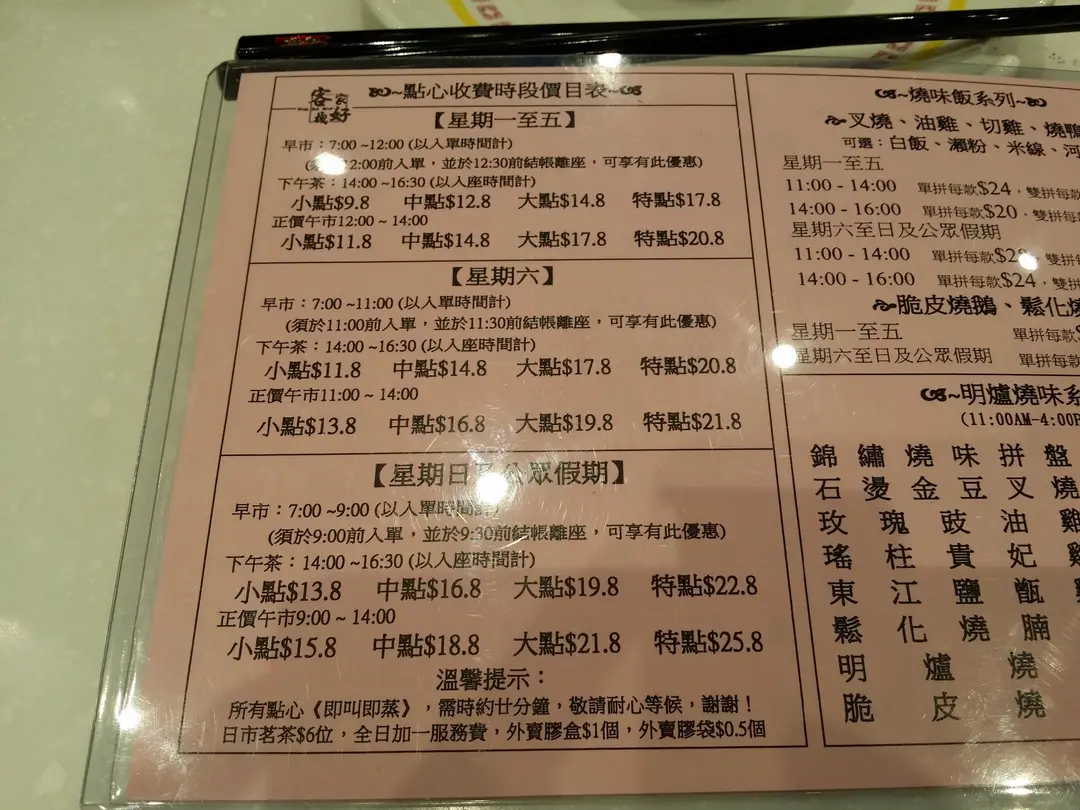 客家好棧
~點心收費時段價目表~
【星期一至五】
早市：7:00 ~12:00 (以入單時間計)
(須 12:00前入單，並於12:30前結帳離座，可享有此優惠)
下午茶：14:00 ~16:30 (以入座時間計)
小點$9.8 中點$12.8 大點$14.8 特點$17.8
正價午市12:00 ~ 14:00
小點$11.8 中點$14.8 大點$17.8 特點$20.8
【星期六】
早市：7:00 ~11:00 (以入單時間計)
(須於11:00前入單，並於11:30前結帳離座，可享有此優惠)
下午茶：14:00 ~16:30 (以入座時間計)
小點$11.8 中點$14.8 大點$17.8 特點$20.8
正價午市11:00 ~ 14:00
小點$13.8 中點$16.8 大點$19.8 特點$21.8
【星期日及公眾假期】
早市：7:00 ~9:00 (以入單時間計)
(須於9:00前入單，並於9:30前結帳離座，可享有此優惠)
下午茶：14:00 ~16:30 (以入座時間計)
小點$13.8 中點$16.8 大點$19.8 特點$22.8
正價午市9:00 ~ 14:00
小點$15.8 中點$18.8 大點$21.8 特點$25.8
溫馨提示：
所有點心《即叫即蒸》，需時約廿分鐘，敬請耐心等候，謝謝！
日市茗茶$6位，全日加一服務費，外賣膠盒$1個，外賣膠袋$0.5個
~燒味飯系列~
~叉燒、油雞、切雞、燒鴨
可選：白飯、瀨粉、米線、河
星期一至五
11:00 - 14:00 單拼每款$24，雙拼每
14:00 - 16:00 單拼每款$20，雙拼每
星期六至日及公眾假期
11:00 - 14:00 單拼每款 雙拼
14:00 - 16:00 單拼每款$24，雙拼
~脆皮燒鵝、鬆化燒
星期一至五 單拼每款
星期六至日及公眾假期 單拼每款
~明爐燒味系
(11:00AM-4:00P
錦繡燒味拼盤
石燙金豆叉燒
玫瑰豉油雞
瑤柱貴妃雞
東江鹽甑
鬆化燒腩
明爐燒
脆皮燒